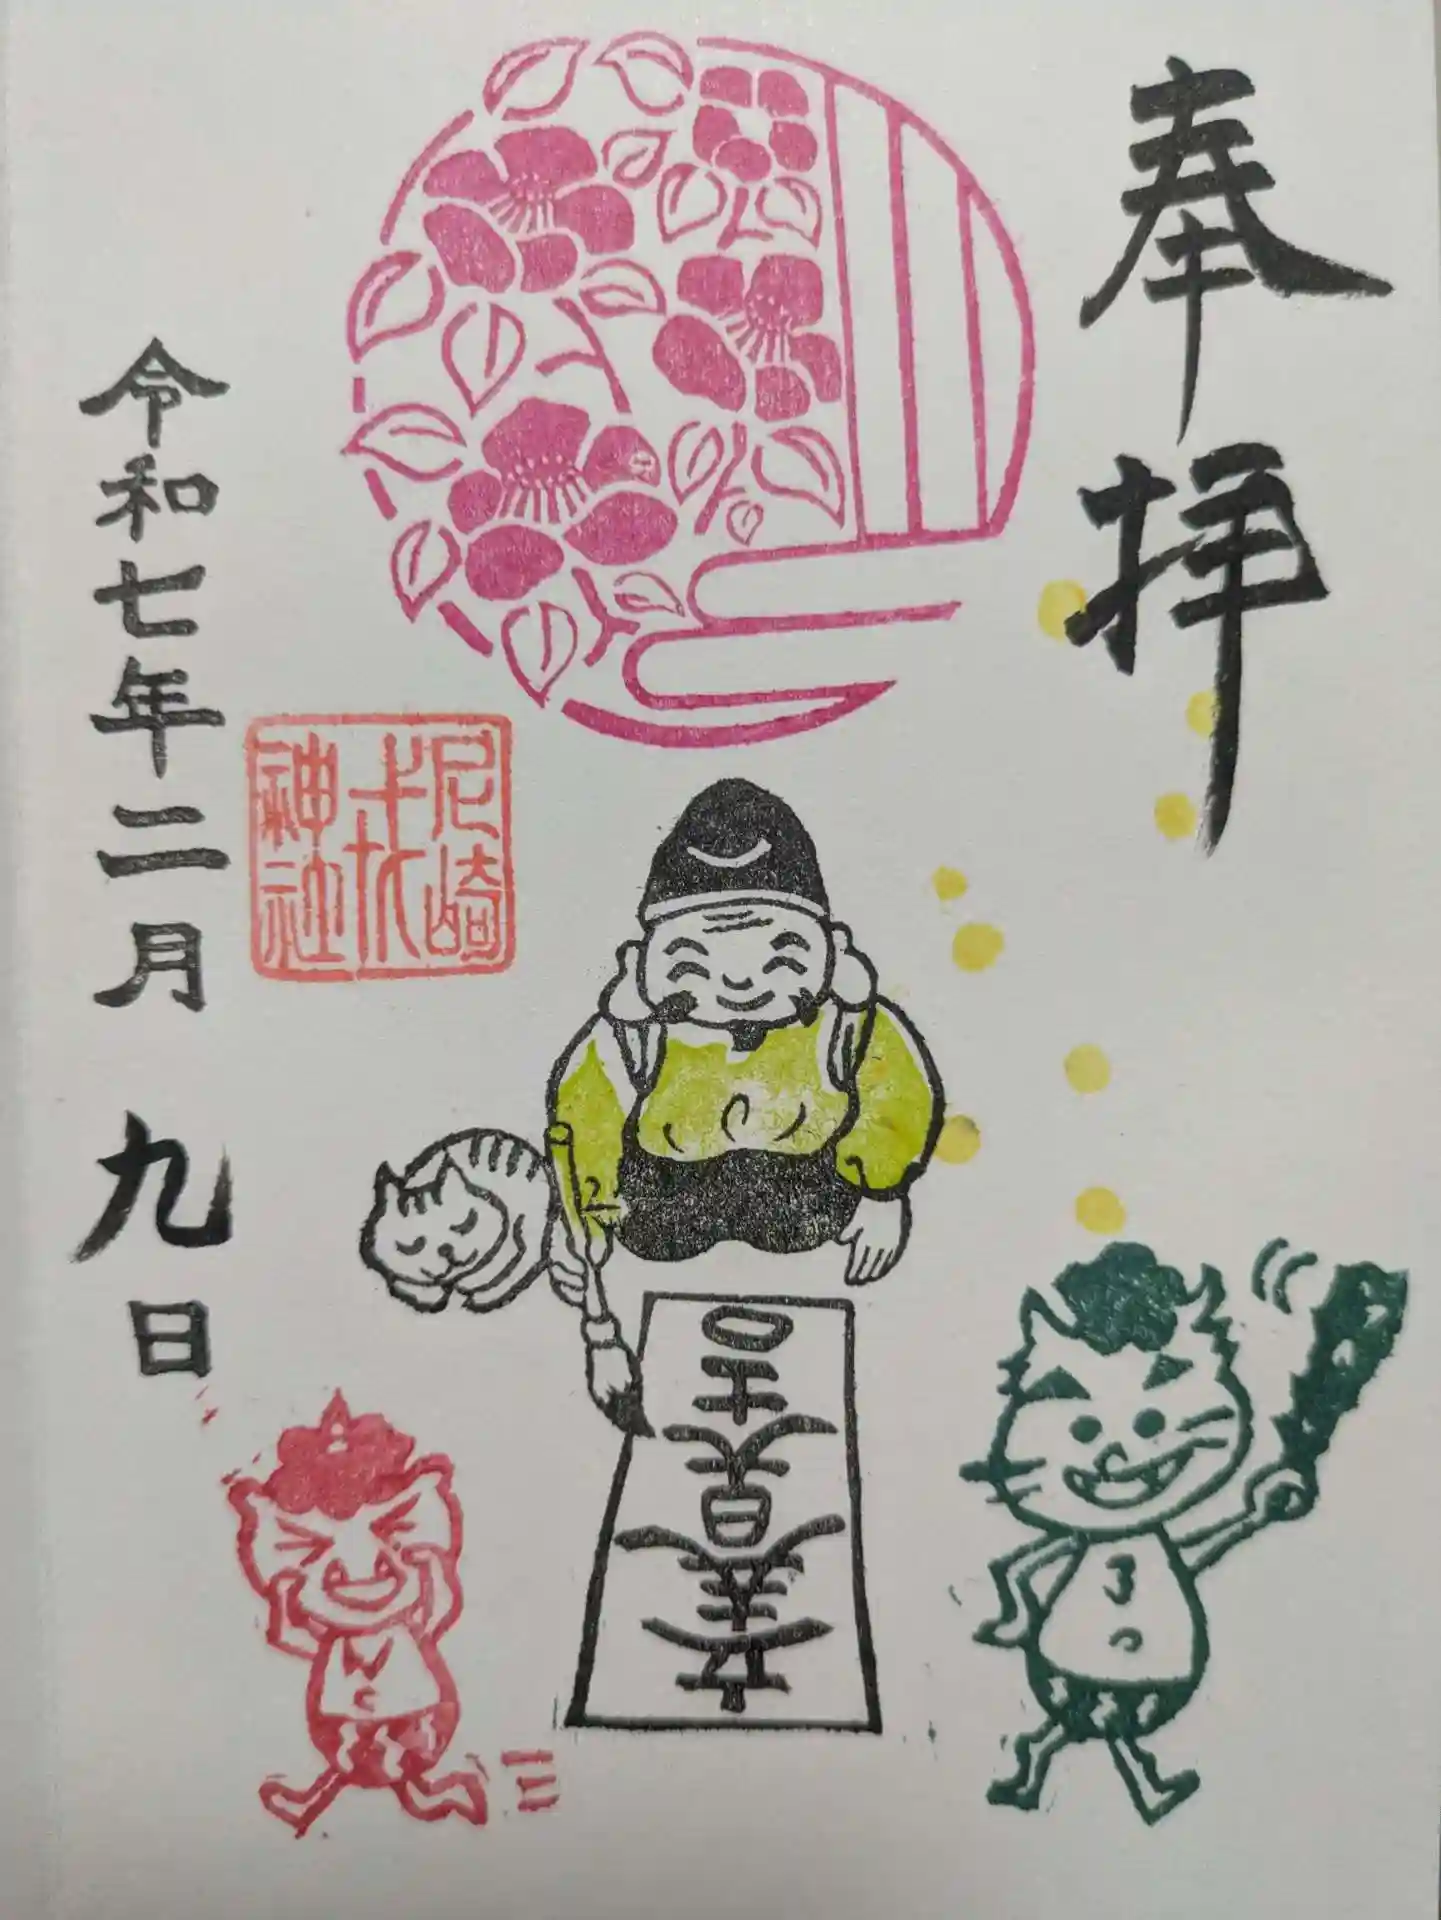 奉拝
尼崎
戎
神社
立春大吉
令和七年二月九日